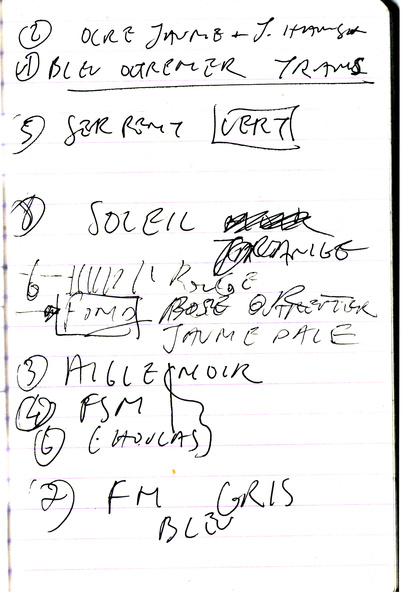 ② OCRE JAUNE + J.
① BLEU OUTREMER TRANS
5) SERPENT VERT
8) SOLEIL
ORANGE
6 ROUGE
FOND ROSE
JAUNE PALE
③ AIGLE NOIR
④ FSM
⑥ (CHOUCAS)
7) FM GRIS
BLEU